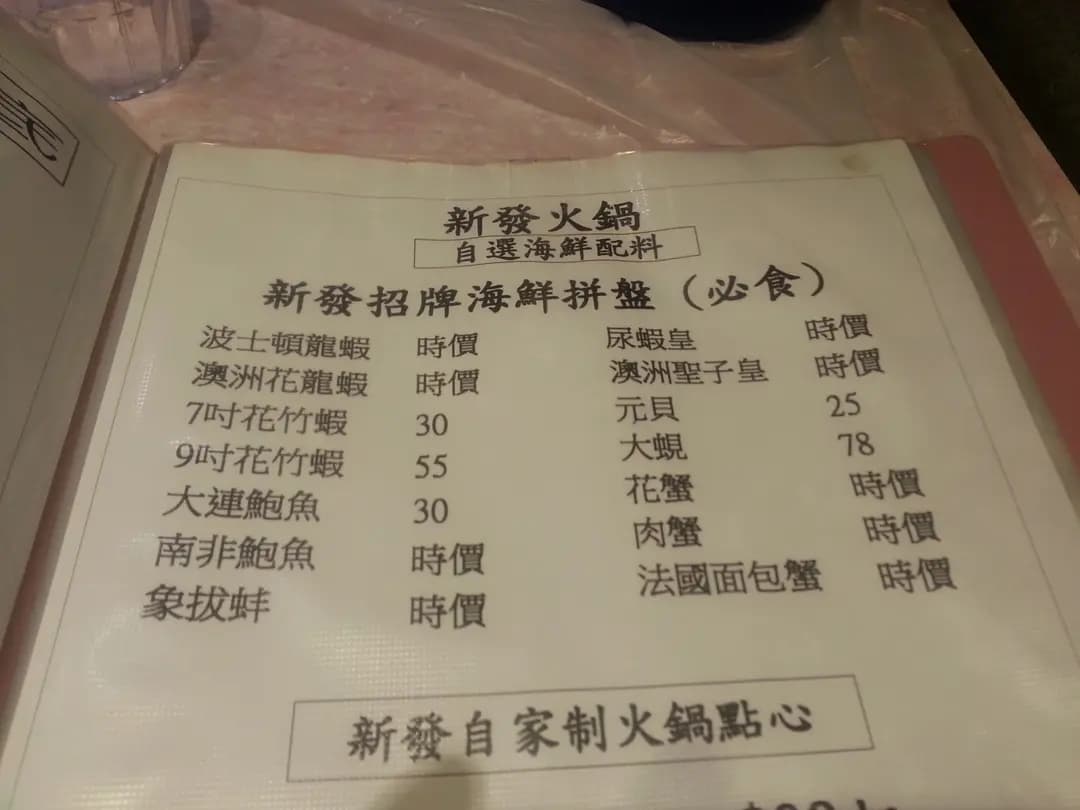 新發火鍋
自選海鮮配料
新發招牌海鮮拼盤（必食）
波士頓龍蝦 時價
澳洲花龍蝦 時價
7吋花竹蝦 30
9吋花竹蝦 55
大連鮑魚 30
南非鮑魚 時價
象拔蚌 時價
尿蝦皇 時價
澳洲聖子皇 時價
元貝 25
大蜆 78
花蟹 時價
肉蟹 時價
法國面包蟹 時價
新發自家制火鍋點心